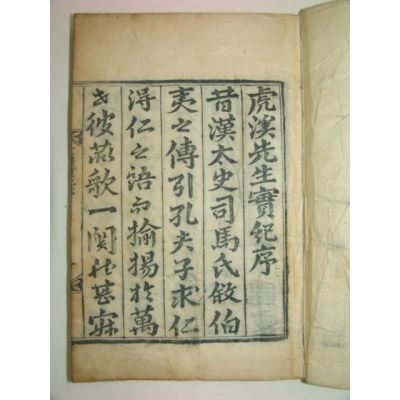 虎溪先生實紀序
昔漢太史司馬氏敘伯
夷之傳引孔夫子求仁
得仁之語而揄揚於萬
世彼歌一闋甚寂